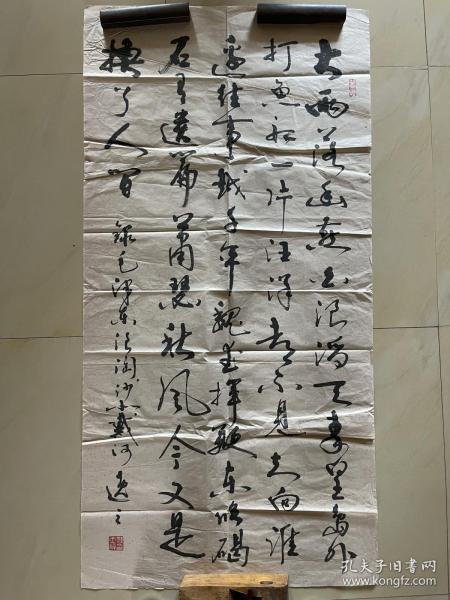 大雨落幽燕白浪滔天秦皇岛外
打鱼船一片汪洋都不见知向谁
边往事越千年魏武挥鞭东临碣
石有遗篇萧瑟秋风今又是
换了人间 录毛泽东浪淘沙北戴河
孔夫子旧书网
www.kongfz.com